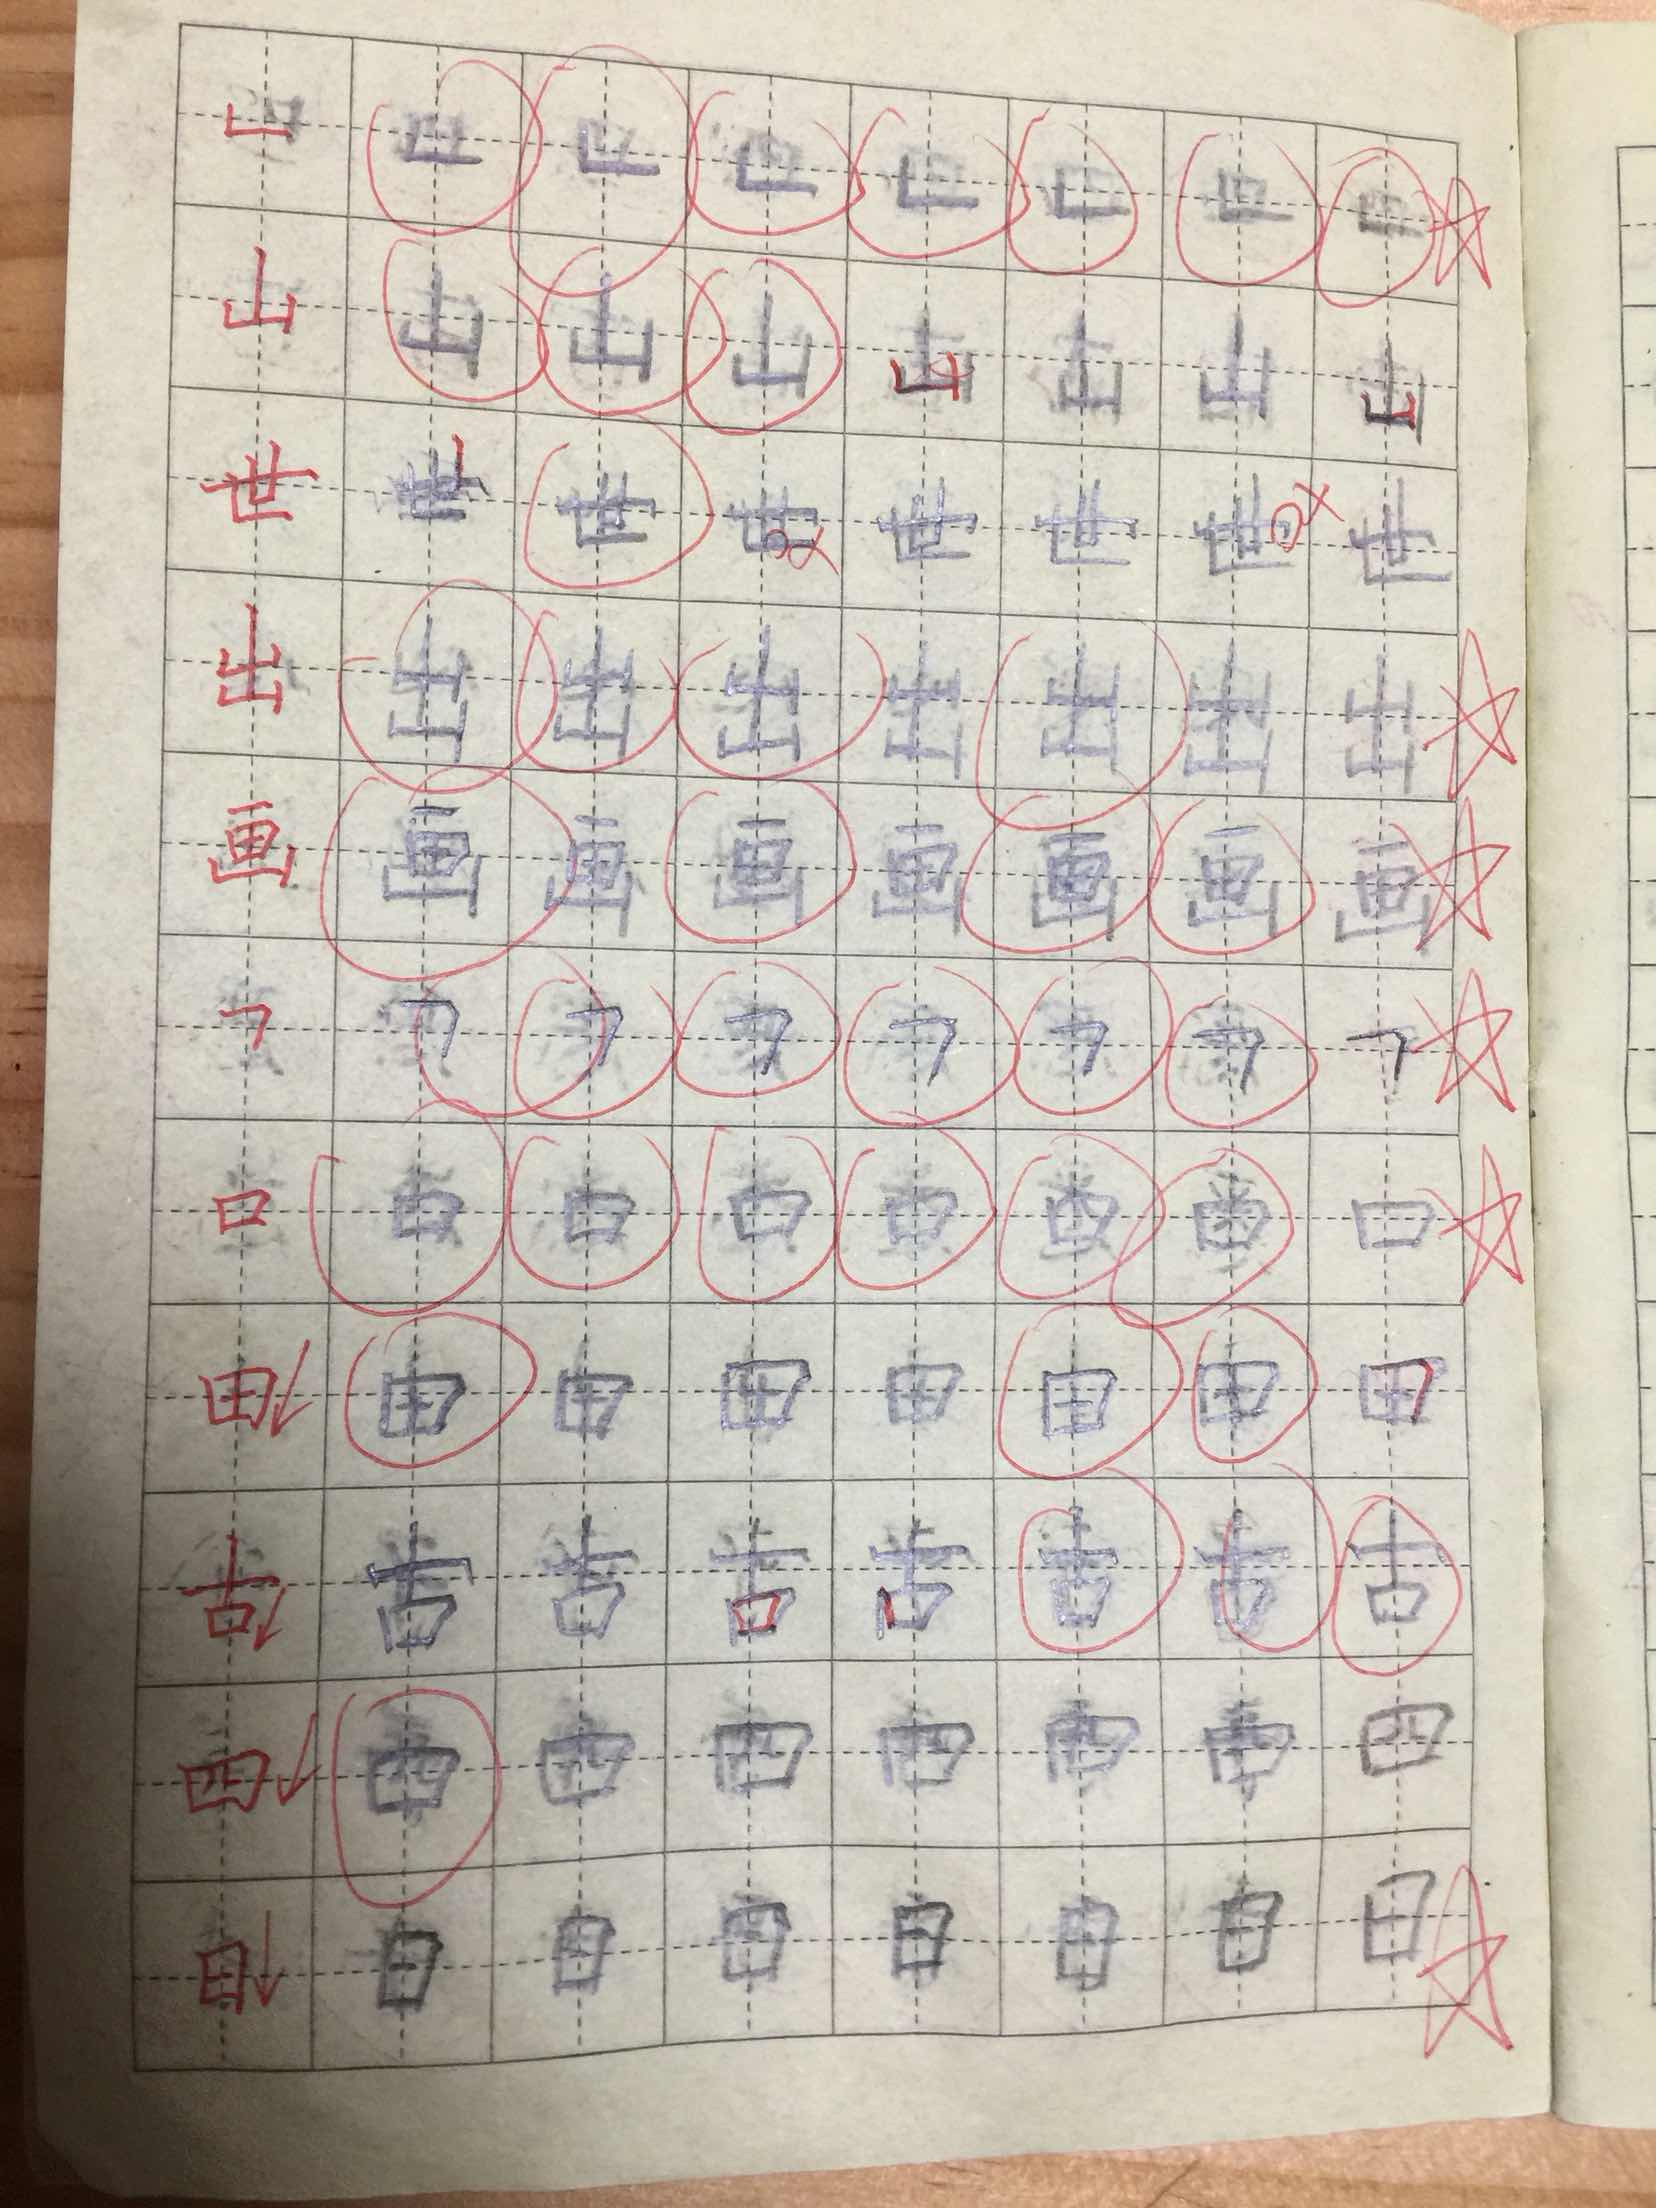 𠃊 𠃊 𠃊 𠃊 𠃊 𠃊 𠃊 𠃊
山 山 山 山 山 山 山 山
世 世 世 世 世 世 世 世
出 出 出 出 出 出 出 出
画 画 画 画 画 画 画 画
𠃍 𠃍 𠃍 𠃍 𠃍 𠃍 𠃍 𠃍
口 口 口 口 口 口 口 口
田 田 田 田 田 田 田 田
古 古 古 古 古 古 古 古
四 四 四 四 四 四 四 四
目 日 日 日 日 日 日 日